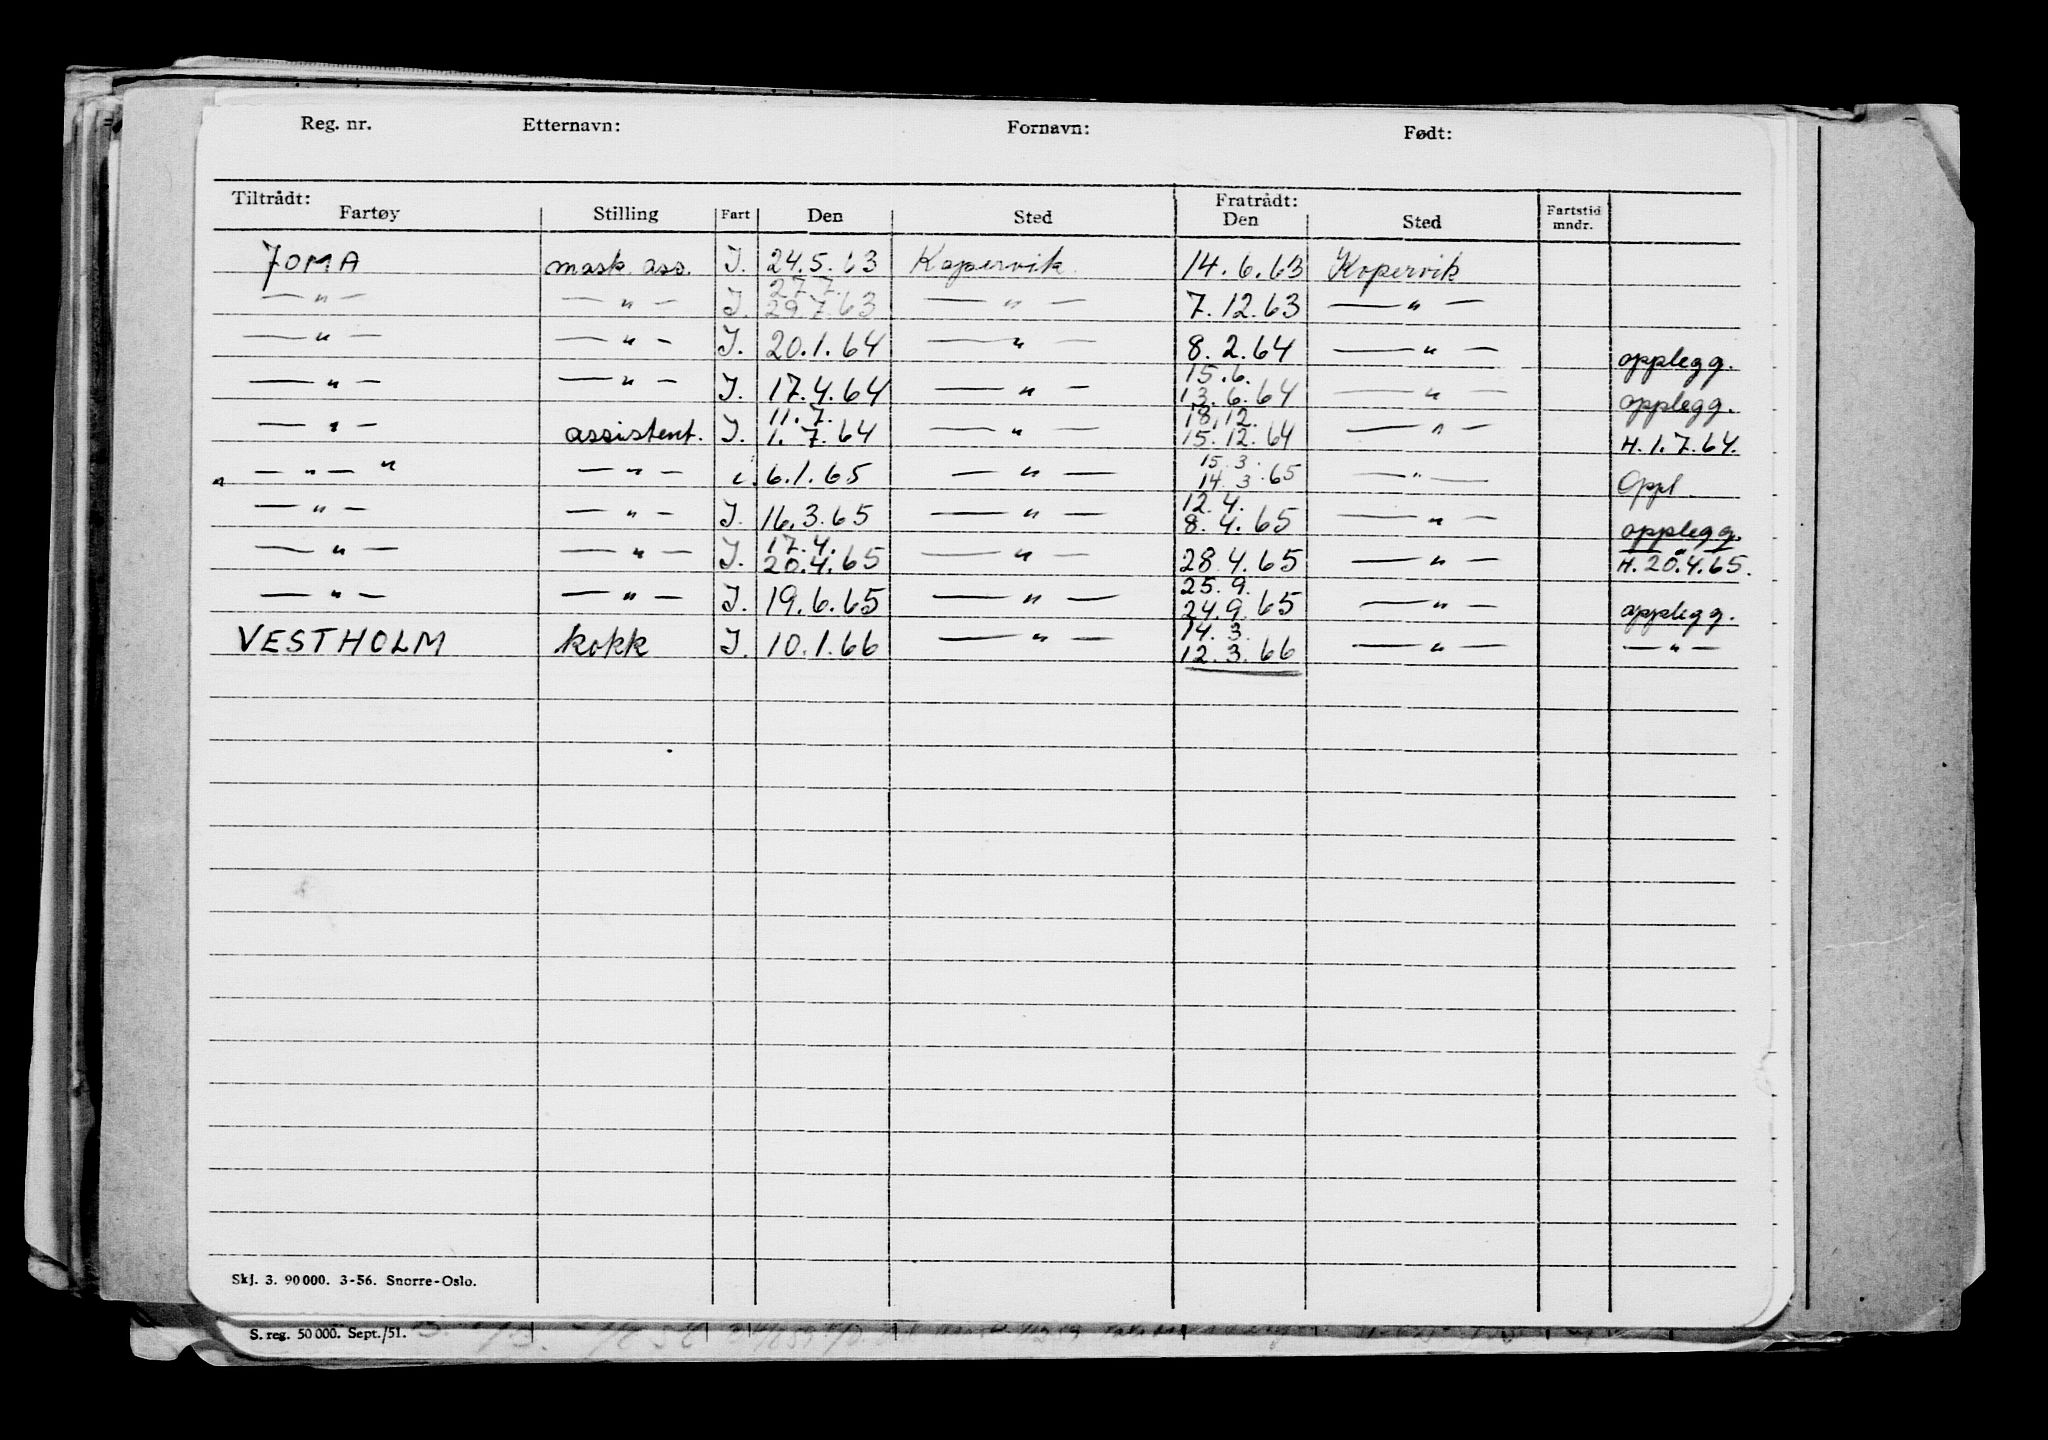 Reg. nr. Etternavn: Fornavn: Født:
Tiltrådt: Fratrådt:
Fartøy Stilling Fart Den Sted Den Sted Fartstid mndr.
JOMA mask. ass. I. 24.5.63 Kopervik 14.6.63 Kopervik
27.7.
— " — — " — I. 29.7.63 — " — 7.12.63 — " —
— " — — " — I. 20.1.64 — " — 8.2.64 — " — opplegg.
15.6.
— " — — " — I. 17.4.64 — " — 13.6.64 — " — opplegg.
11.7. 18.12.
— " — assistent. I. 1.7.64 — " — 15.12.64 — " — H.1.7.64.
15.3.
" — " — " — " — i. 6.1.65 — " — 14.3.65 — " — Oppl
12.4.
— " — — " — I. 16.3.65 — " — 8.4.65 — " — opplegg.
17.4.
— " — — " — I. 20.4.65 — " — 28.4.65 — " — H.20.4.65.
25.9.
— " — — " — I. 19.6.65 — " — 24.9.65 — " — opplegg.
14.3.
VESTHOLM kokk I. 10.1.66 — " — 12.3.66 — " — — " —
Skj. 3. 90 000. 3-56. Snorre-Oslo.
S. reg. 50 000. Sept./51.